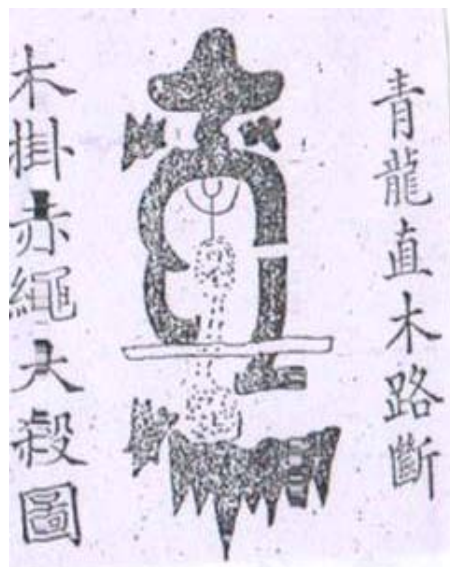 青龍直木路斷
木掛赤繩大殺圖